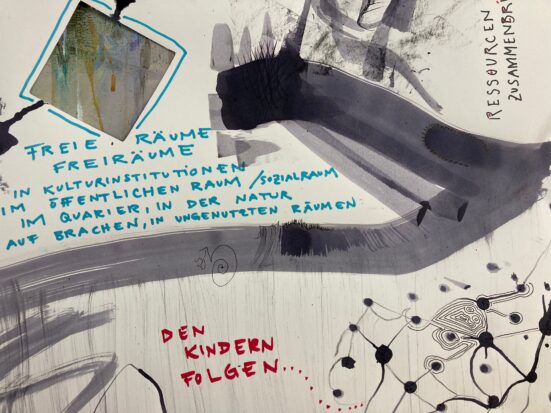 FREIE RÄUME
FREIRÄUME
IN KULTURINSTITUTIONEN
IM ÖFFENTLICHEN RAUM / SOZIALRAUM
IM QUARIER, IN DER NATUR
AUF BRACHEN, IN UNGENUTZTEN RÄUMEN
RESSOURCEN
ZUSAMMENBRI
DEN
KINDERN
FOLGEN...